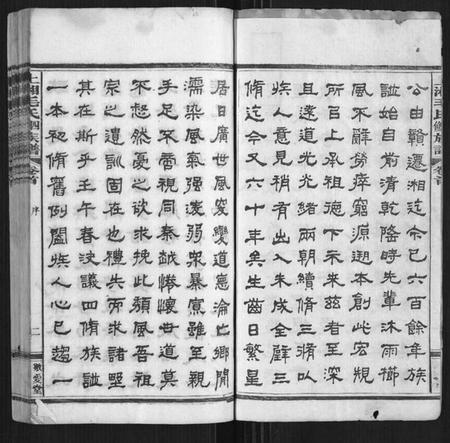 公由贛遷湘迄今已六百餘年族
譜始自前清乾隆時先輩沐雨櫛
風不辭勞瘁窮源溯本創此宏規
所召上承祖德下示來兹者至深
且遠道光光緒兩朝續脩三脩以
族人意見稍有出入未成全璧三
脩迄今又六十年矣生齒日繁星
居日廣世風突變道悳淪亡鄉閭
濡染風氣强凌弱衆暴寡雖至親
手足不啻視同秦越懷世道莫
不惄然憂之欲求挽此頹風吾祖
宗之遺訓固在也禮失而求諸野
其在斯乎壬午春決議四脩族譜
一本初脩舊例闔族人心已趨一
上湘毛氏四族譜
卷首
序
二